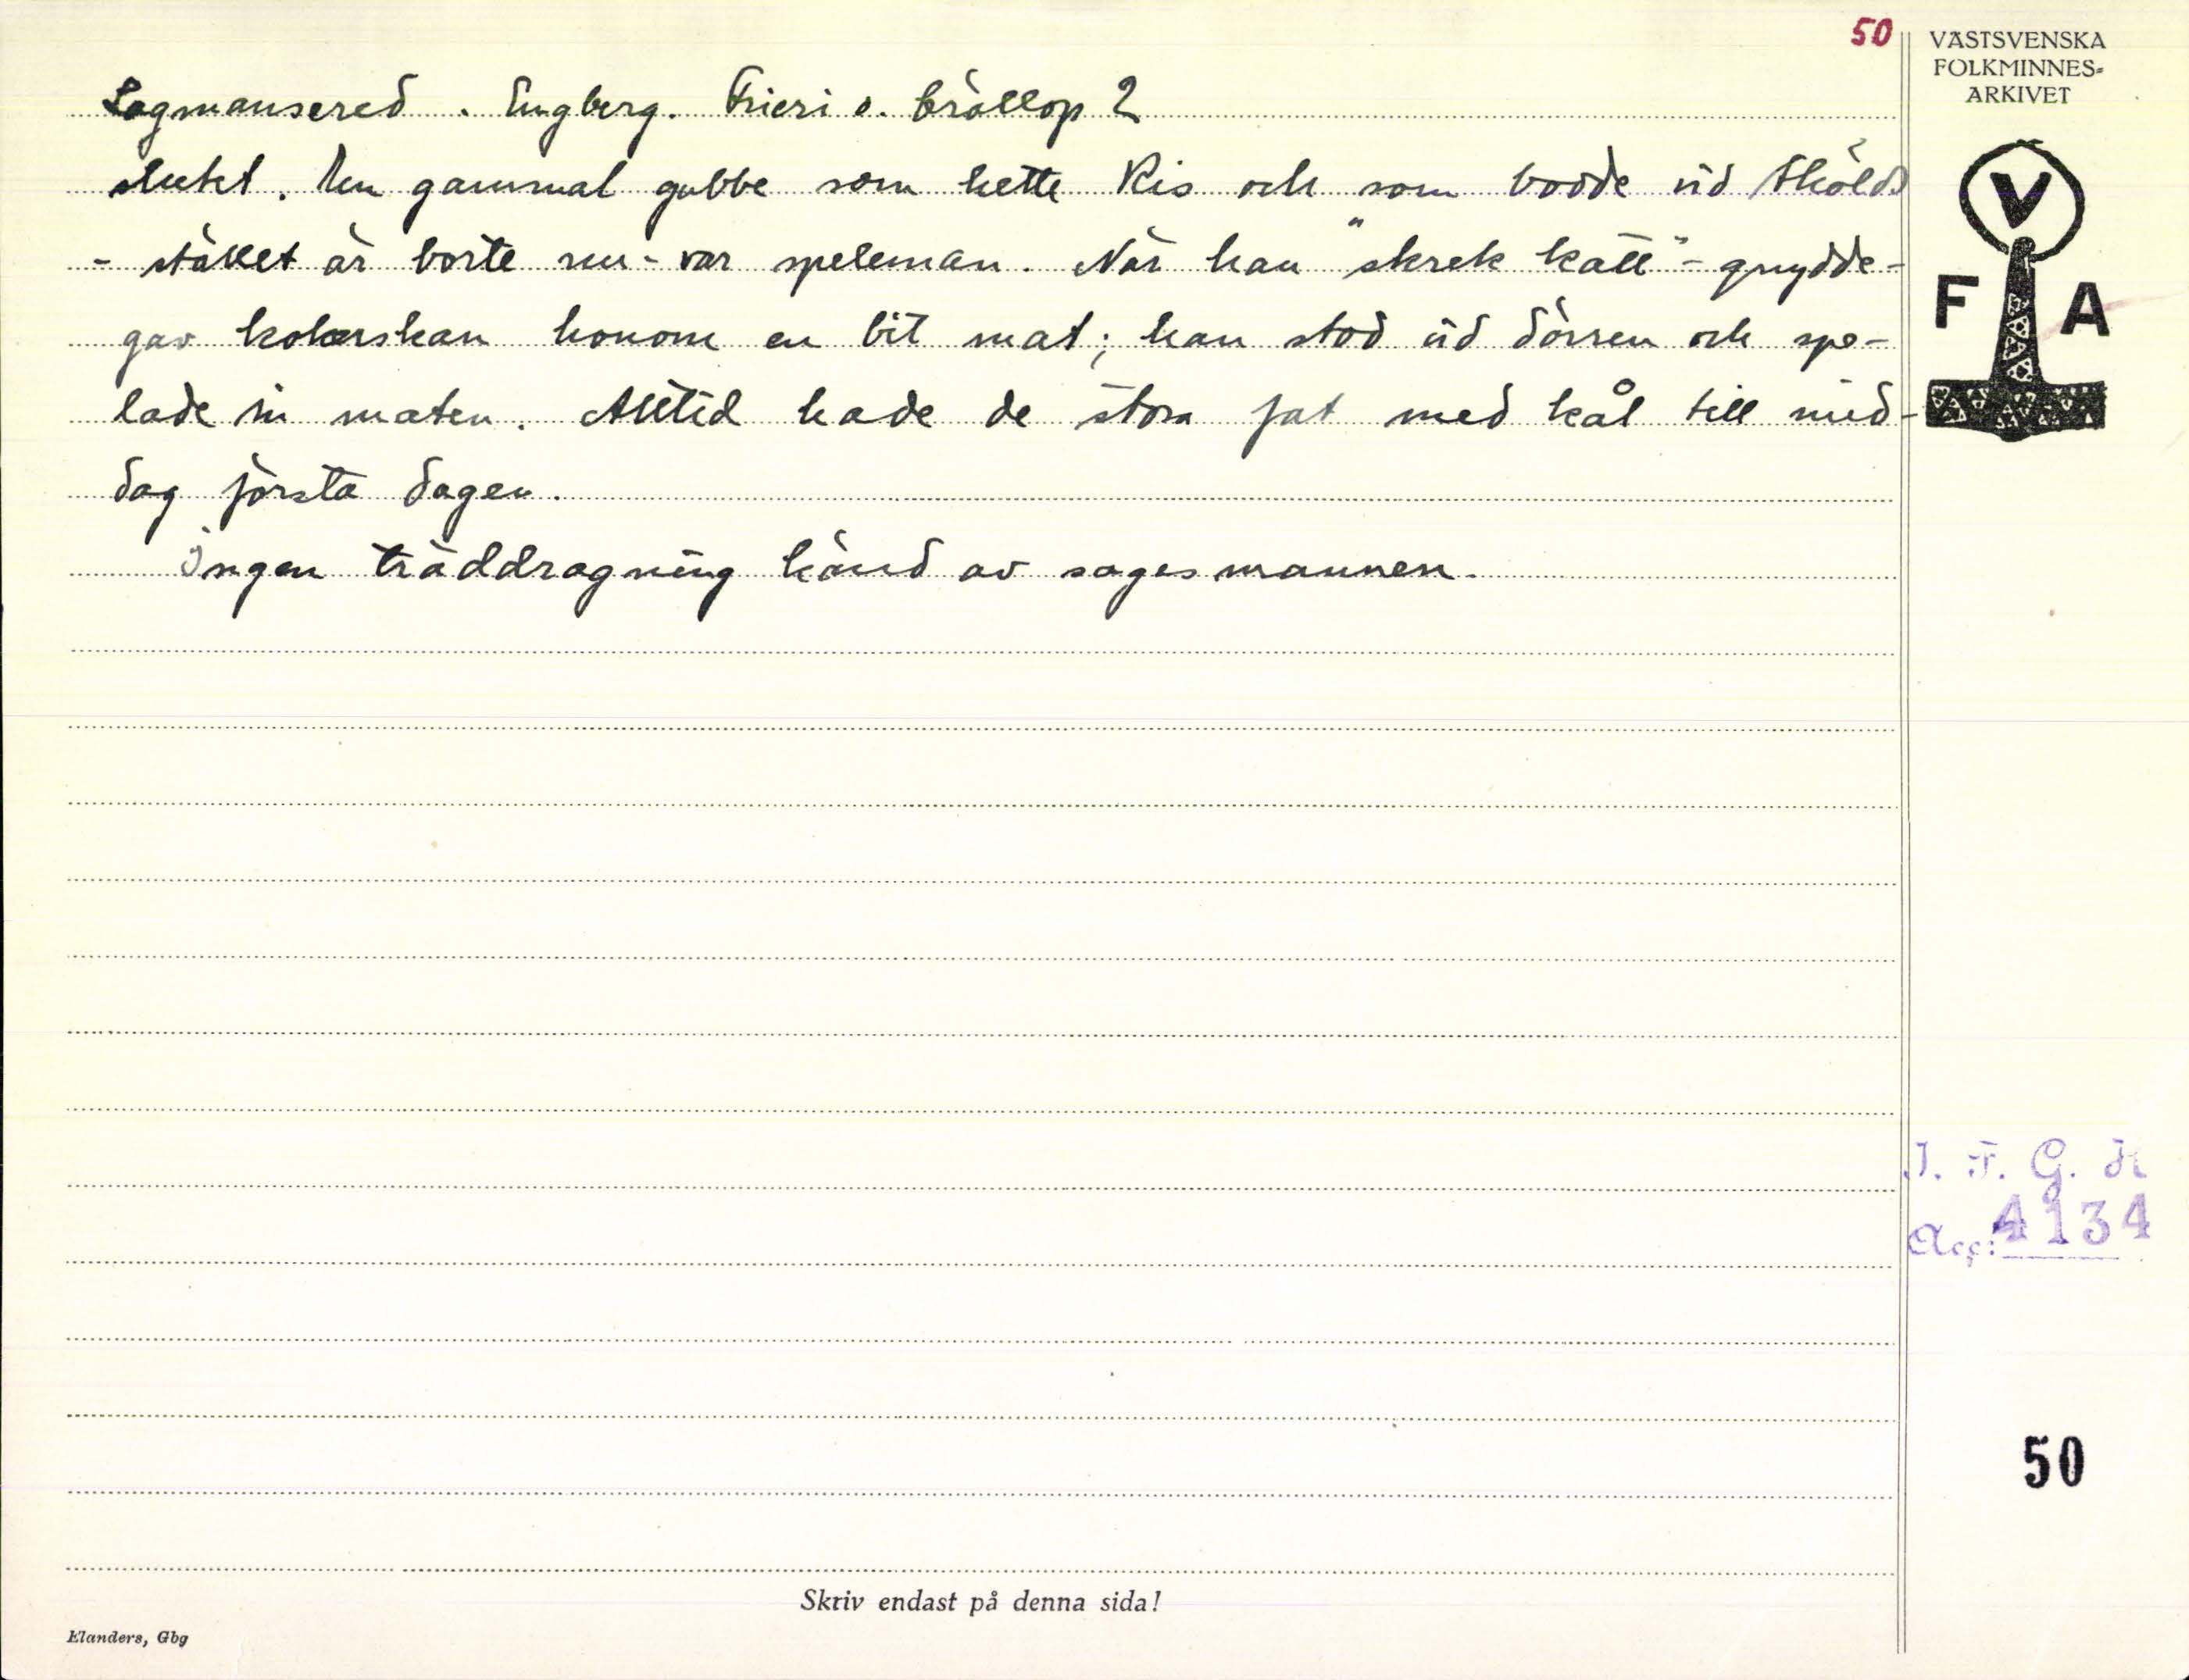 50
VÄSTSVENSKA
FOLKMINNES-
ARKIVET
Lagmansered. Engberg. Frieri o. bröllop 2
slutet. En gammal gubbe som hette Ris och som bodde vid Sköld
- stället är borte nu - var speleman. När han "skrek katt" - gnydde -
gav kokerskan honom en bit mat; han stod vid dörren och spe-
lade in maten. Alltid hade de stora fat med kål till mid-
dag första dagen.
Ingen tråddragning känd av sagesmannen.
V
F A
I. F. G. H
Acc: 4134
50
Skriv endast på denna sida!
Elanders, Gbg